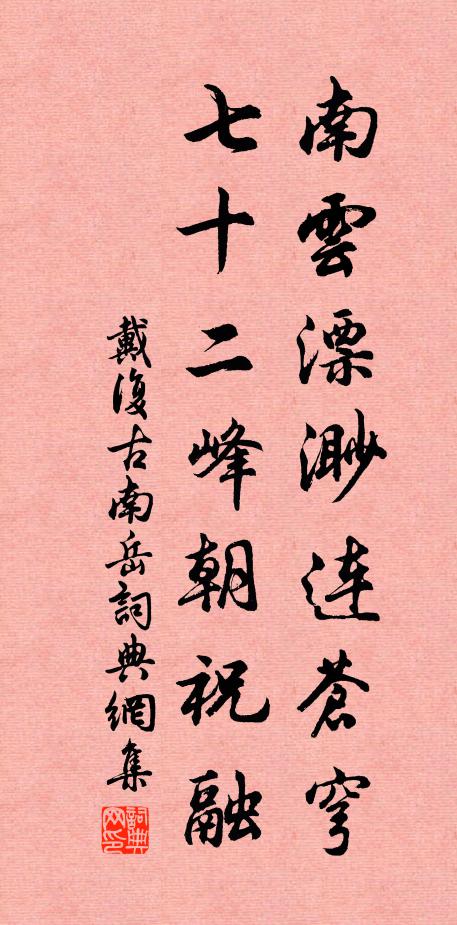 南雲漂渺連蒼穹
七十二峰朝祝融
戴復古南岳詞典網集
詞典網印